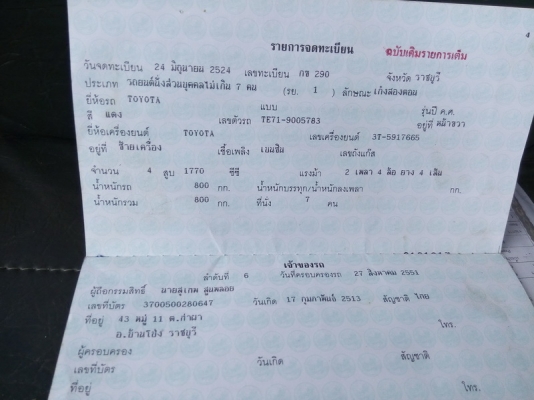 4
รายการจดทะเบียน ฉบับเดิมรายการเต็ม
วันจดทะเบียน 24 มิถุนายน 2524 เลขทะเบียน กข 290 จังหวัด ราชบุรี
ประเภท รถยนต์นั่งส่วนบุคคลไม่เกิน 7 คน (รย. 1 ) ลักษณะ เก๋งสองตอน
ยี่ห้อรถ TOYOTA แบบ รุ่นปี ค.ศ.
สี แดง เลขตัวรถ TE71-9005783 อยู่ที่ หน้าขวา
ยี่ห้อเครื่องยนต์ TOYOTA เลขเครื่องยนต์ 3T-5917665
อยู่ที่ ซ้ายเครื่อง เชื้อเพลิง เบนซิน เลขถังแก๊ส
จำนวน 4 สูบ 1770 ซีซี แรงม้า 2 เพลา 4 ล้อ ยาง 4 เส้น
น้ำหนักรถ 800 กก. น้ำหนักบรรทุก/น้ำหนักลงเพลา กก.
น้ำหนักรวม 800 กก. ที่นั่ง 7 คน
เจ้าของรถ
ลำดับที่ 6 วันที่ครอบครองรถ 27 สิงหาคม 2551
ผู้ถือกรรมสิทธิ์ นายสุเทพ
เลขที่บัตร 3700500280647 วันเกิด 17 กุมภาพันธ์ 2513 สัญชาติ ไทย
ที่อยู่ 43 หมู่ 11 ต.ท่าผา โทร.
อ.บ้านโป่ง ราชบุรี
ผู้ครอบครอง
เลขที่บัตร วันเกิด สัญชาติ
ที่อยู่ โทร.